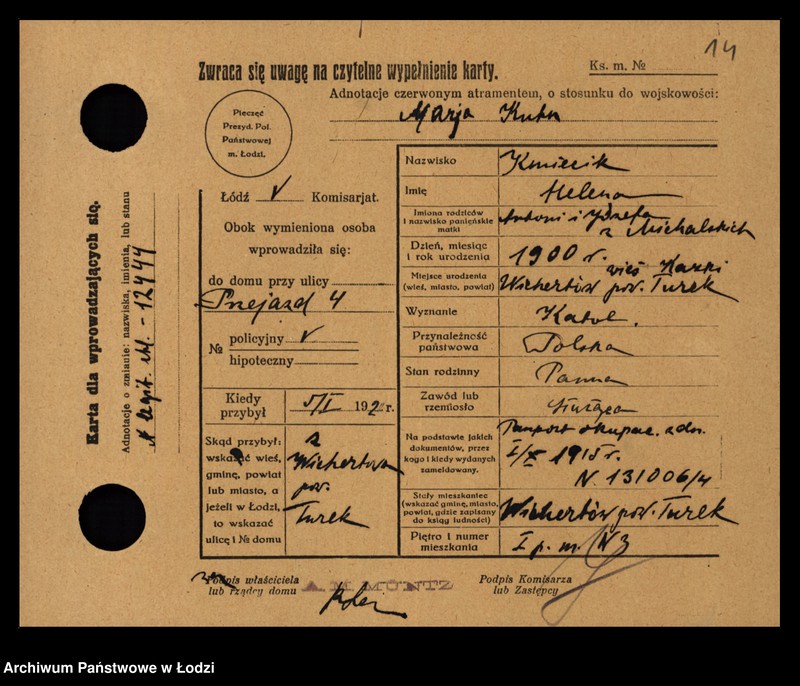 14
Zwraca się uwagę na czytelne wypełnienie karty.
Ks. m. №
Adnotacje czerwonym atramentem, o stosunku do wojskowości:
Marja
Pieczęć
Prezyd. Pol.
Państwowej
m. Łodzi.
Karta dla wprowadzających się.
Adnotacje o zmianie: nazwiska, imienia, lub stanu
N legit. 12444
Łódź V Komisarjat.
Obok wymieniona osoba
wprowadziła się:
do domu przy ulicy
Przejazd 4
№ policyjny
hipoteczny
Kiedy
przybył
5/I 192 r.
Skąd przybył:
wskazać wieś,
gminę, powiat
lub miasto, a
jeżeli w Łodzi,
to wskazać
ulicę i № domu
z
Wichertowa
pow.
Turek
Nazwisko Kmiecik
Imię Helena
Imiona rodziców
i nazwisko panieńskie
matki
Antoni i Józefa
z Michalskich
Dzień, miesiąc
i rok urodzenia
1900 r.
Miejsce urodzenia
(wieś, miasto, powiat)
wieś
Wichertów pow. Turek
Wyznanie Katol.
Przynależność
państwowa
Polska
Stan rodzinny Panna
Zawód lub
rzemiosło
służąca
Na podstawie jakich
dokumentów, przez
kogo i kiedy wydanych
zameldowany.
Paszport okupac. z dn.
1915 r.
N 131006/4
Stały mieszkaniec
(wskazać gminę, miasto,
powiat, gdzie zapisany
do ksiąg ludności)
Wichertów pow. Turek
Piętro i numer
mieszkania
I p. m. N 3
Podpis właściciela
lub rządcy domu
A. H. MUNTZ
Podpis Komisarza
lub Zastępcy
Archiwum Państwowe w Łodzi